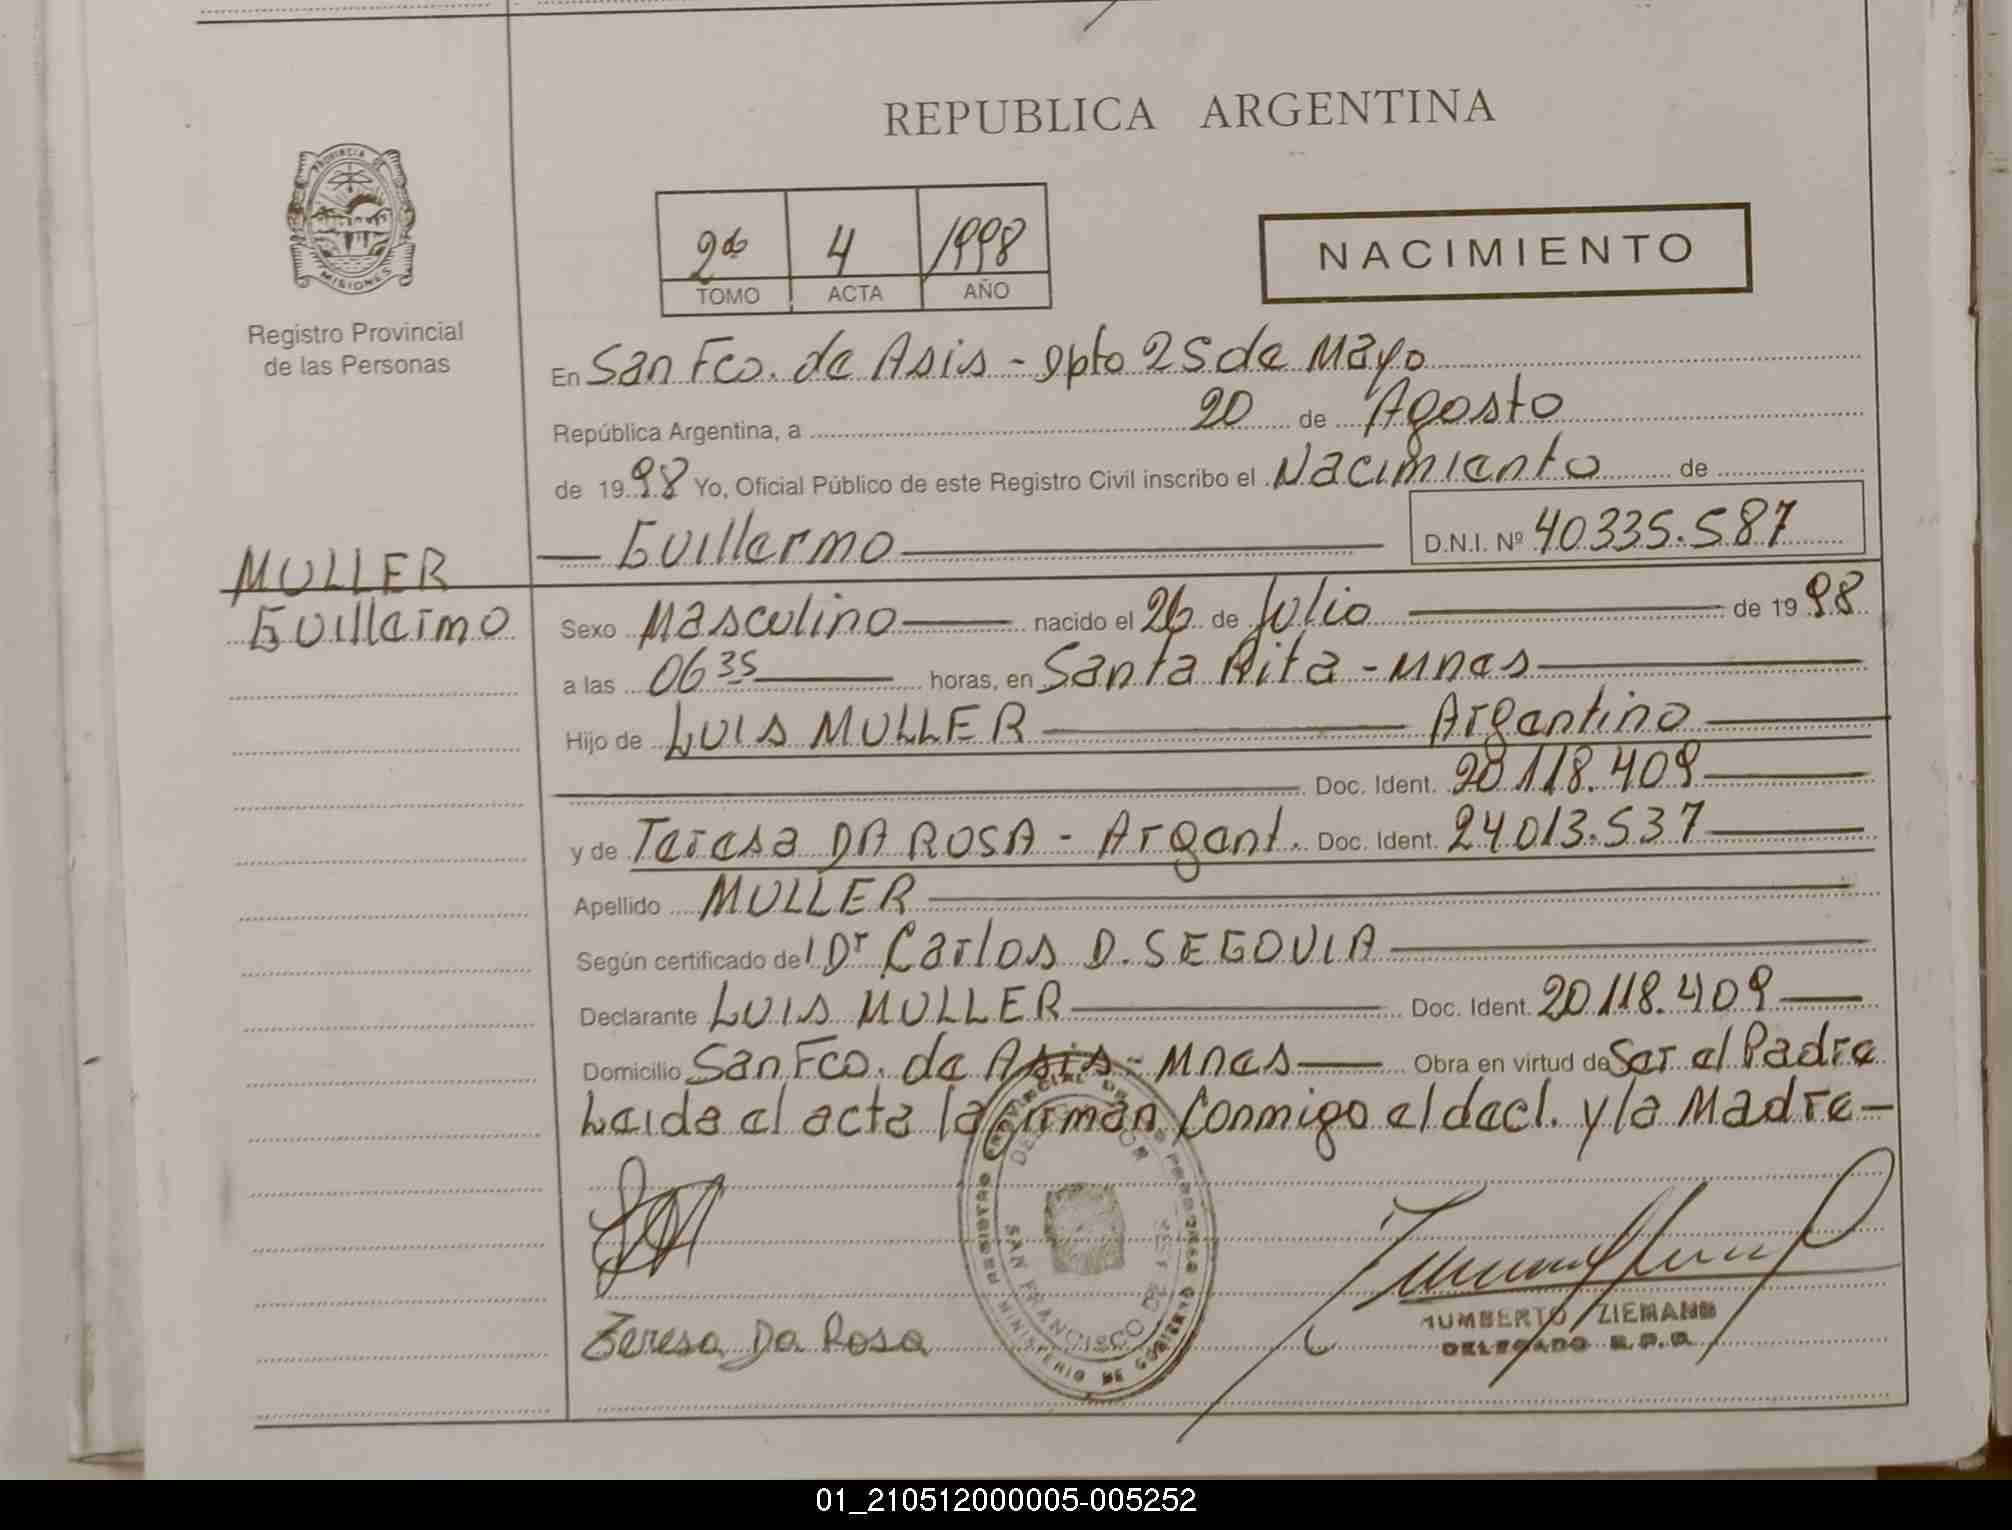 REPUBLICA ARGENTINA
PROVINCIA DE
MISIONES
Registro Provincial
de las Personas
2do 4 1998
TOMO ACTA AÑO
NACIMIENTO
En San Fco. de Asis - Dpto 25 de Mayo
República Argentina, a 20 de Agosto
de 1998 Yo, Oficial Público de este Registro Civil inscribo el Nacimiento de
Guillermo D.N.I. Nº 40335.587
MULLER
Guillermo
Sexo Masculino nacido el 26 de Julio de 1998
a las 06 35 horas, en Santa Rita - Mnes
Hijo de LUIS MULLER Argentino
Doc. Ident. 20118.409
y de Teresa DA ROSA - Argent. Doc. Ident. 24013.537
Apellido MULLER
Según certificado del Dr Carlos D. SEGOVIA
Declarante LUIS MULLER Doc. Ident. 20118.409
Domicilio San Fco. de Asis - Mnes Obra en virtud de Ser el Padre
Leida el acta la firman conmigo el decl. y la Madre -
Teresa Da Rosa
SAN FRANCISCO DE
MINISTERIO DE GOBIERNO
HUMBERTO ZIEMANN
DELEGADO R.P.P.
01_210512000005-005252